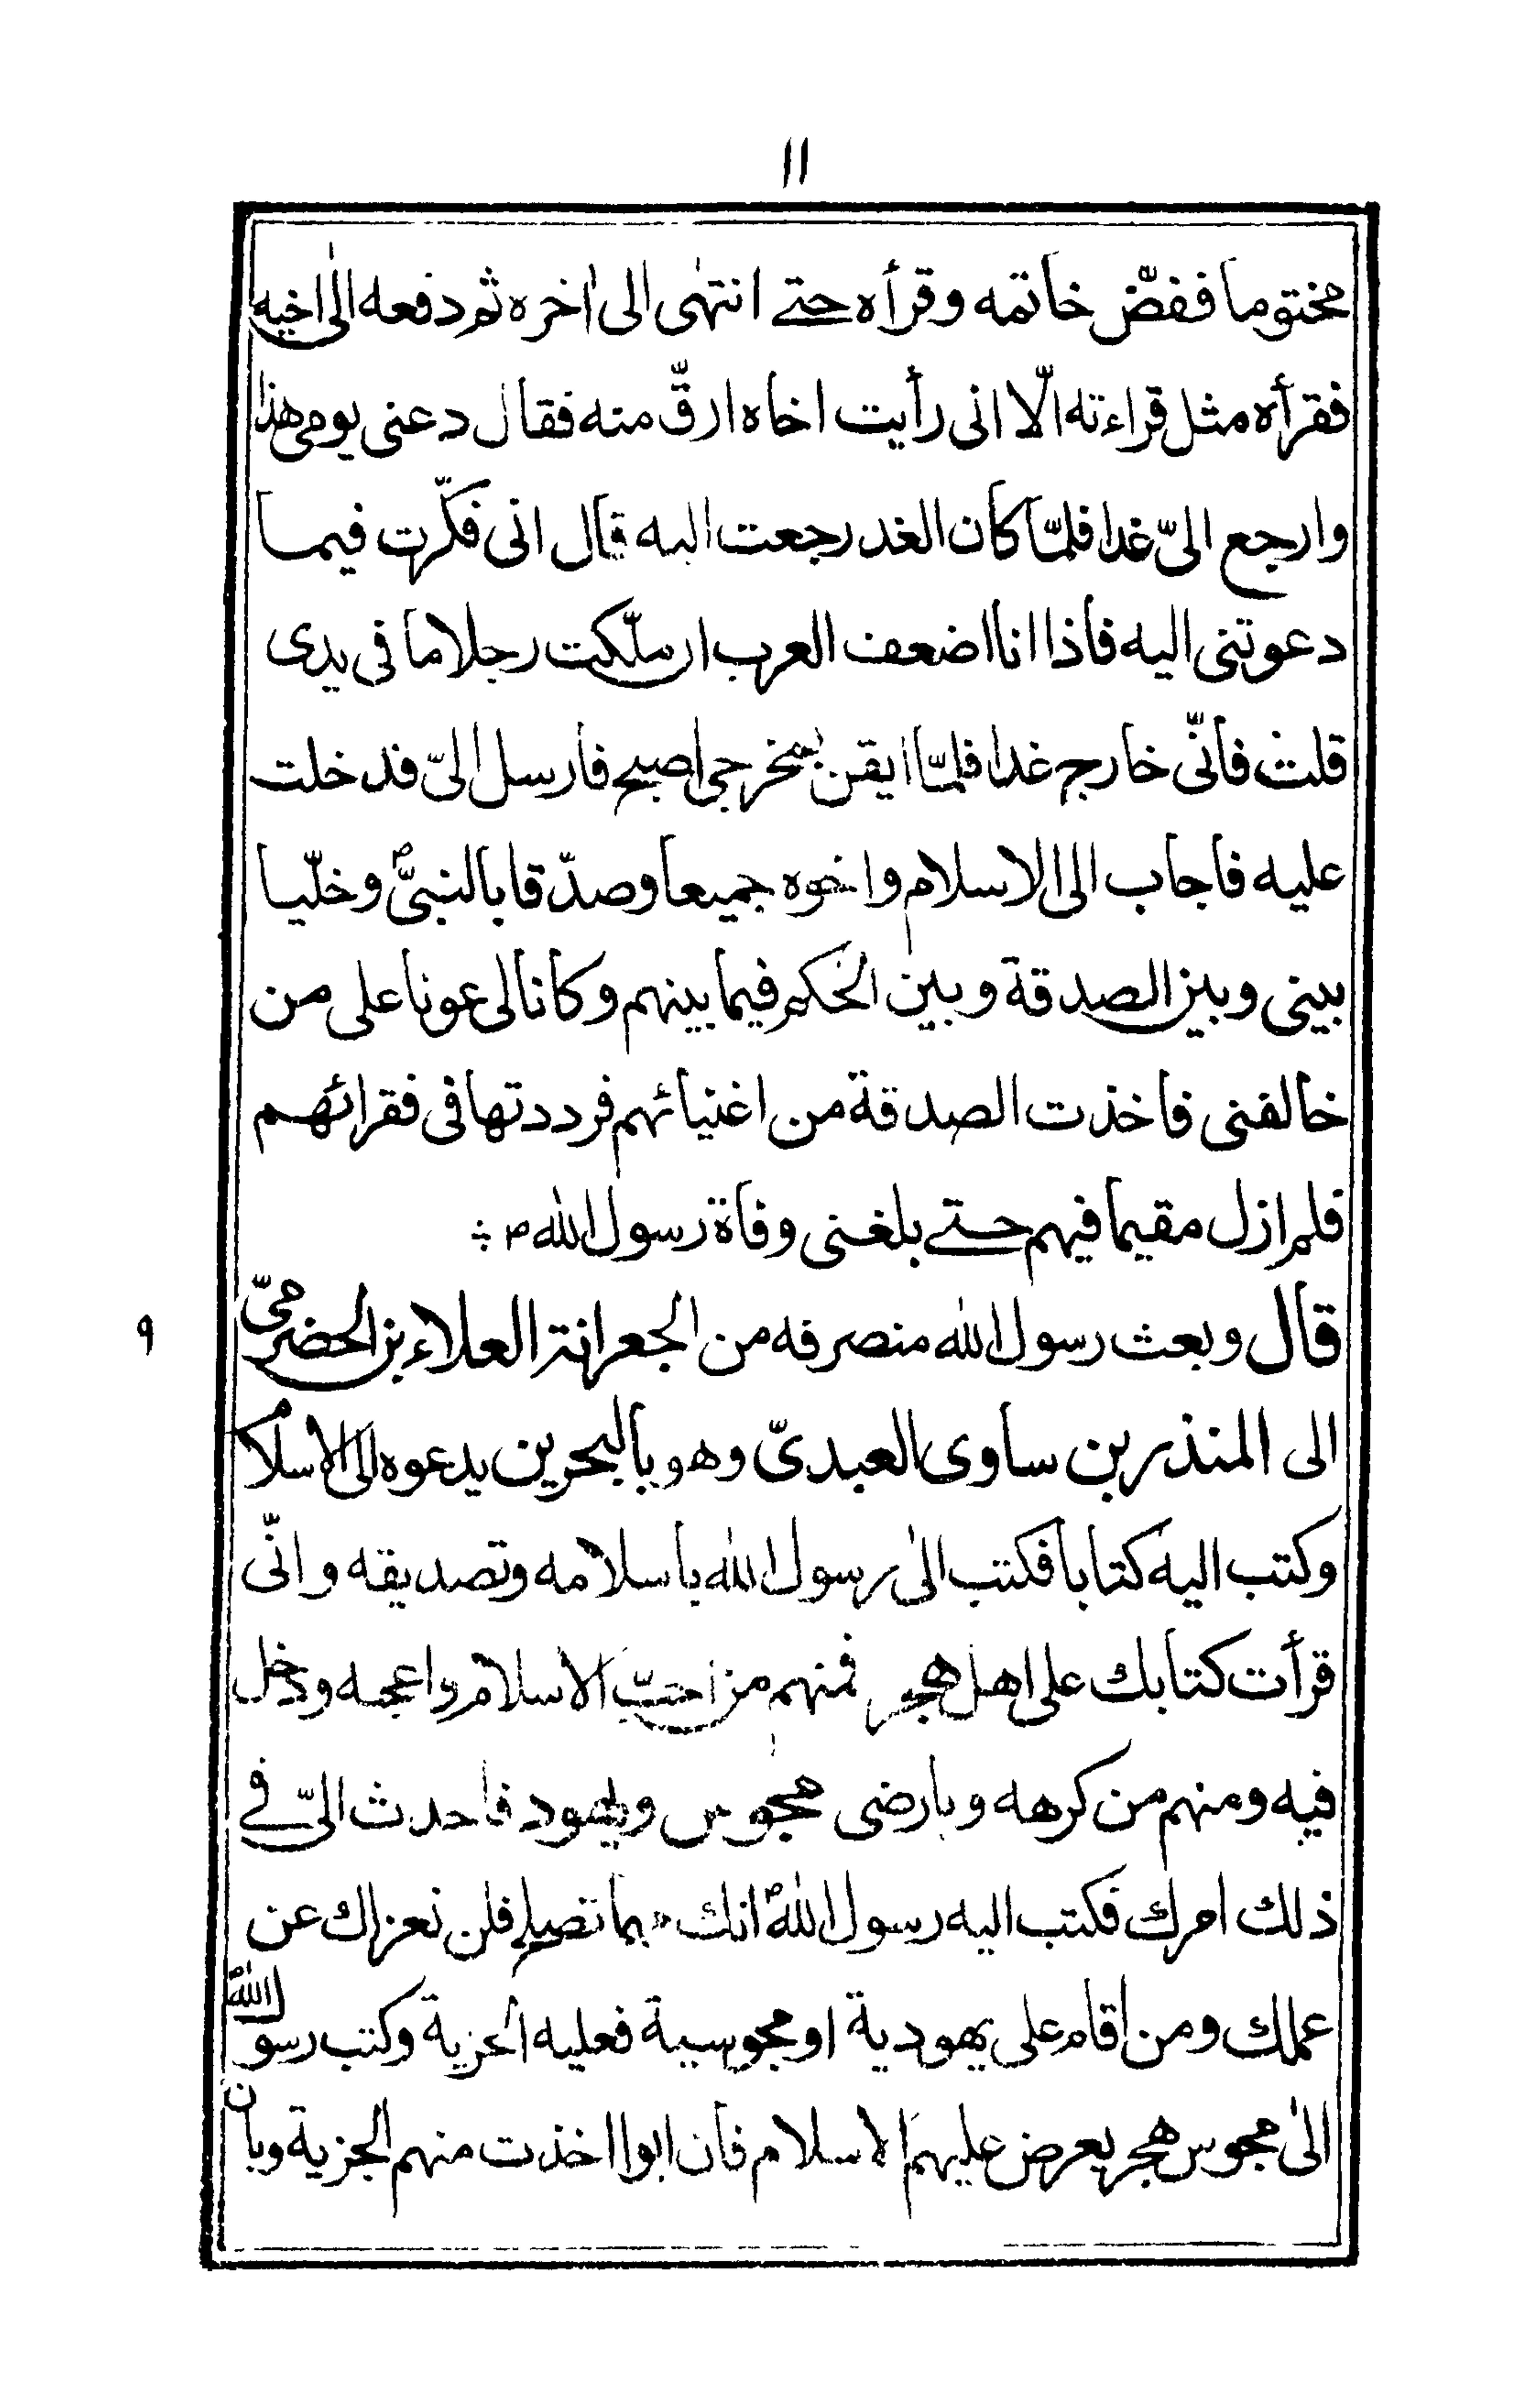 ١١
مختوما ففضّ خاتمه وقرأه حتے انتهٰى الى اٰخره ثم دفعه الٰى اخيه
فقرأه مثل قراءته الّا انى رأيت اخاه ارقّ منه فقال دعنى يومى هذا
وارجع الىّ غدا فلمّا كان الغد رجعت اليه قال انى فكّرت فيما
دعوتنى اليه فاذا انا اضعف العرب ان ملّكت رجلا ما فى يدى
قلت فانّى خارج غدا فلمّا ايقن بمخرجى اصبح فارسل الىّ فدخلت
عليه فاجاب الى الاسلام واخوه جميعا وصدّقا بالنبىّ ؐ وخلّيا
بينى وبين الصدقة وبين الحكم فيما بينهم وكانا لى عونا على من
خالفنى فاخذت الصدقة من اغنيائهم فرددتها فى فقرائهم
فلم ازل مقيما فيهم حتے بلغنى وفاة رسول الله ص ؞
قال وبعث رسول الله منصرفه من الجعرانة العلاء بن الحضرمىّ
٩
الى المنذر بن ساوى العبدىّ وهو بالبحرين يدعوه الى الاسلام
وكتب اليه كتابا فكتب الٰى رسول الله باسلامه وتصديقه وانّى
قرأت كتابك على اهل هجر فمنهم من احبّ الاسلام واعجبه ودخل
فيه ومنهم من كرهه وبارضى مجوس ويهود فاحدث الىّ فے
ذلك امرك فكتب اليه رسول الله ؐ انك مهما تصلح فلن نعزلك عن
عملك ومن اقام على يهودية او مجوسية فعليه الجزية وكتب رسول الله ؐ
الٰى مجوس هجر يعرض عليهم الاسلام فان ابوا اخذت منهم الجزية وبان